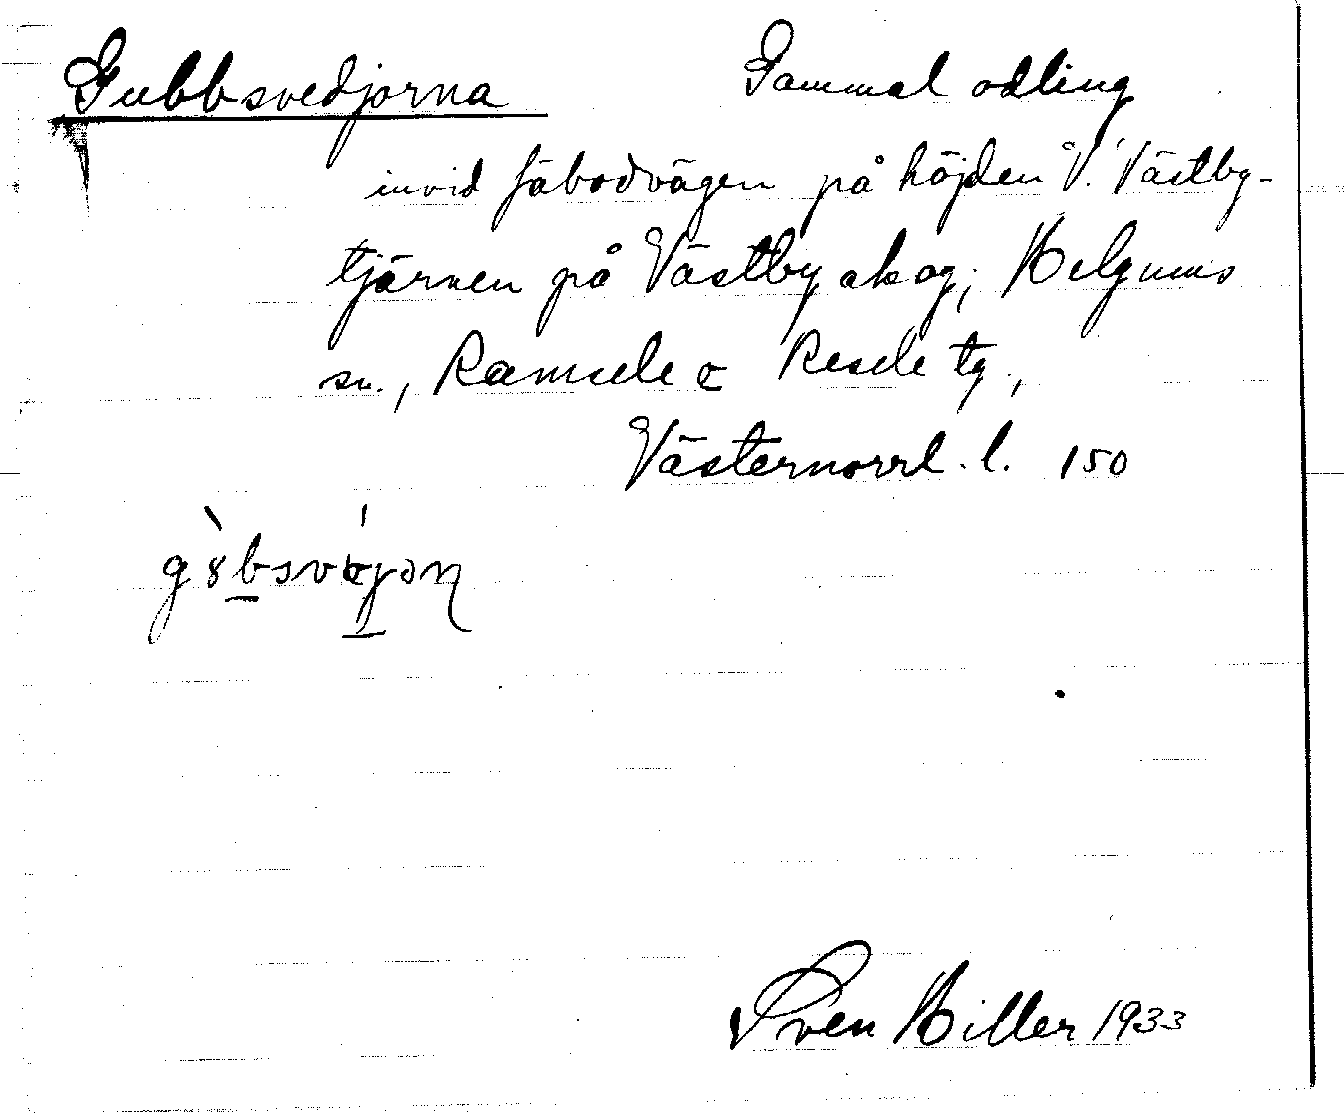 Gubbsvedjorna Gammal odling
invid fäbodvägen på höjden V. Västby-
tjärnen på Västby skog; Helgums
sn., Ramsele o Resele tg.,
Västernorrl. l. 150
Sven Hiller 1933